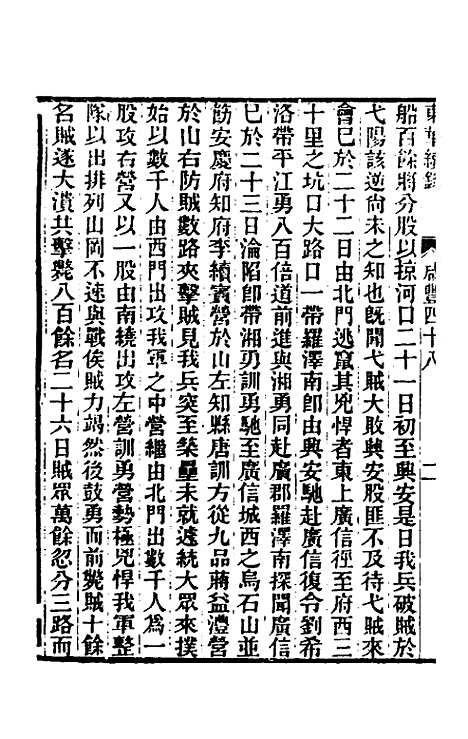 東華續錄　咸豐四十八　二
船百餘將分股以掠河口二十一日初至興安是日我兵破賊於
弋陽該逆尚未之知也旣聞弋賊大敗興安股匪不及待弋賊來
會已於二十二日由北門逃竄其兇悍者東上廣信徑至府西三
十里之坑口大路口一帶羅澤南卽由興安馳赴廣信復令劉希
洛帶平江勇八百倍道前進與湘勇同赴廣郡羅澤南探聞廣信
已於二十三日淪陷卽帶湘勇訓勇馳至廣信城西之烏石山並
飭安慶府知府李續賓營於山左知縣唐訓方從九品蔣益澧營
於山右防賊數路夾擊賊見我兵突至築壘未就遽統大眾來撲
始以數千人由西門出攻我軍之中營繼由北門出數千人為一
股攻右營又以一股由南繞出攻左營訓勇營勢極兇悍我軍整
隊以出排列山岡不速與戰俟賊力竭然後鼓勇而前斃賊十餘
名賊遂大潰共擊斃八百餘名二十六日賊眾萬餘忽分三路而